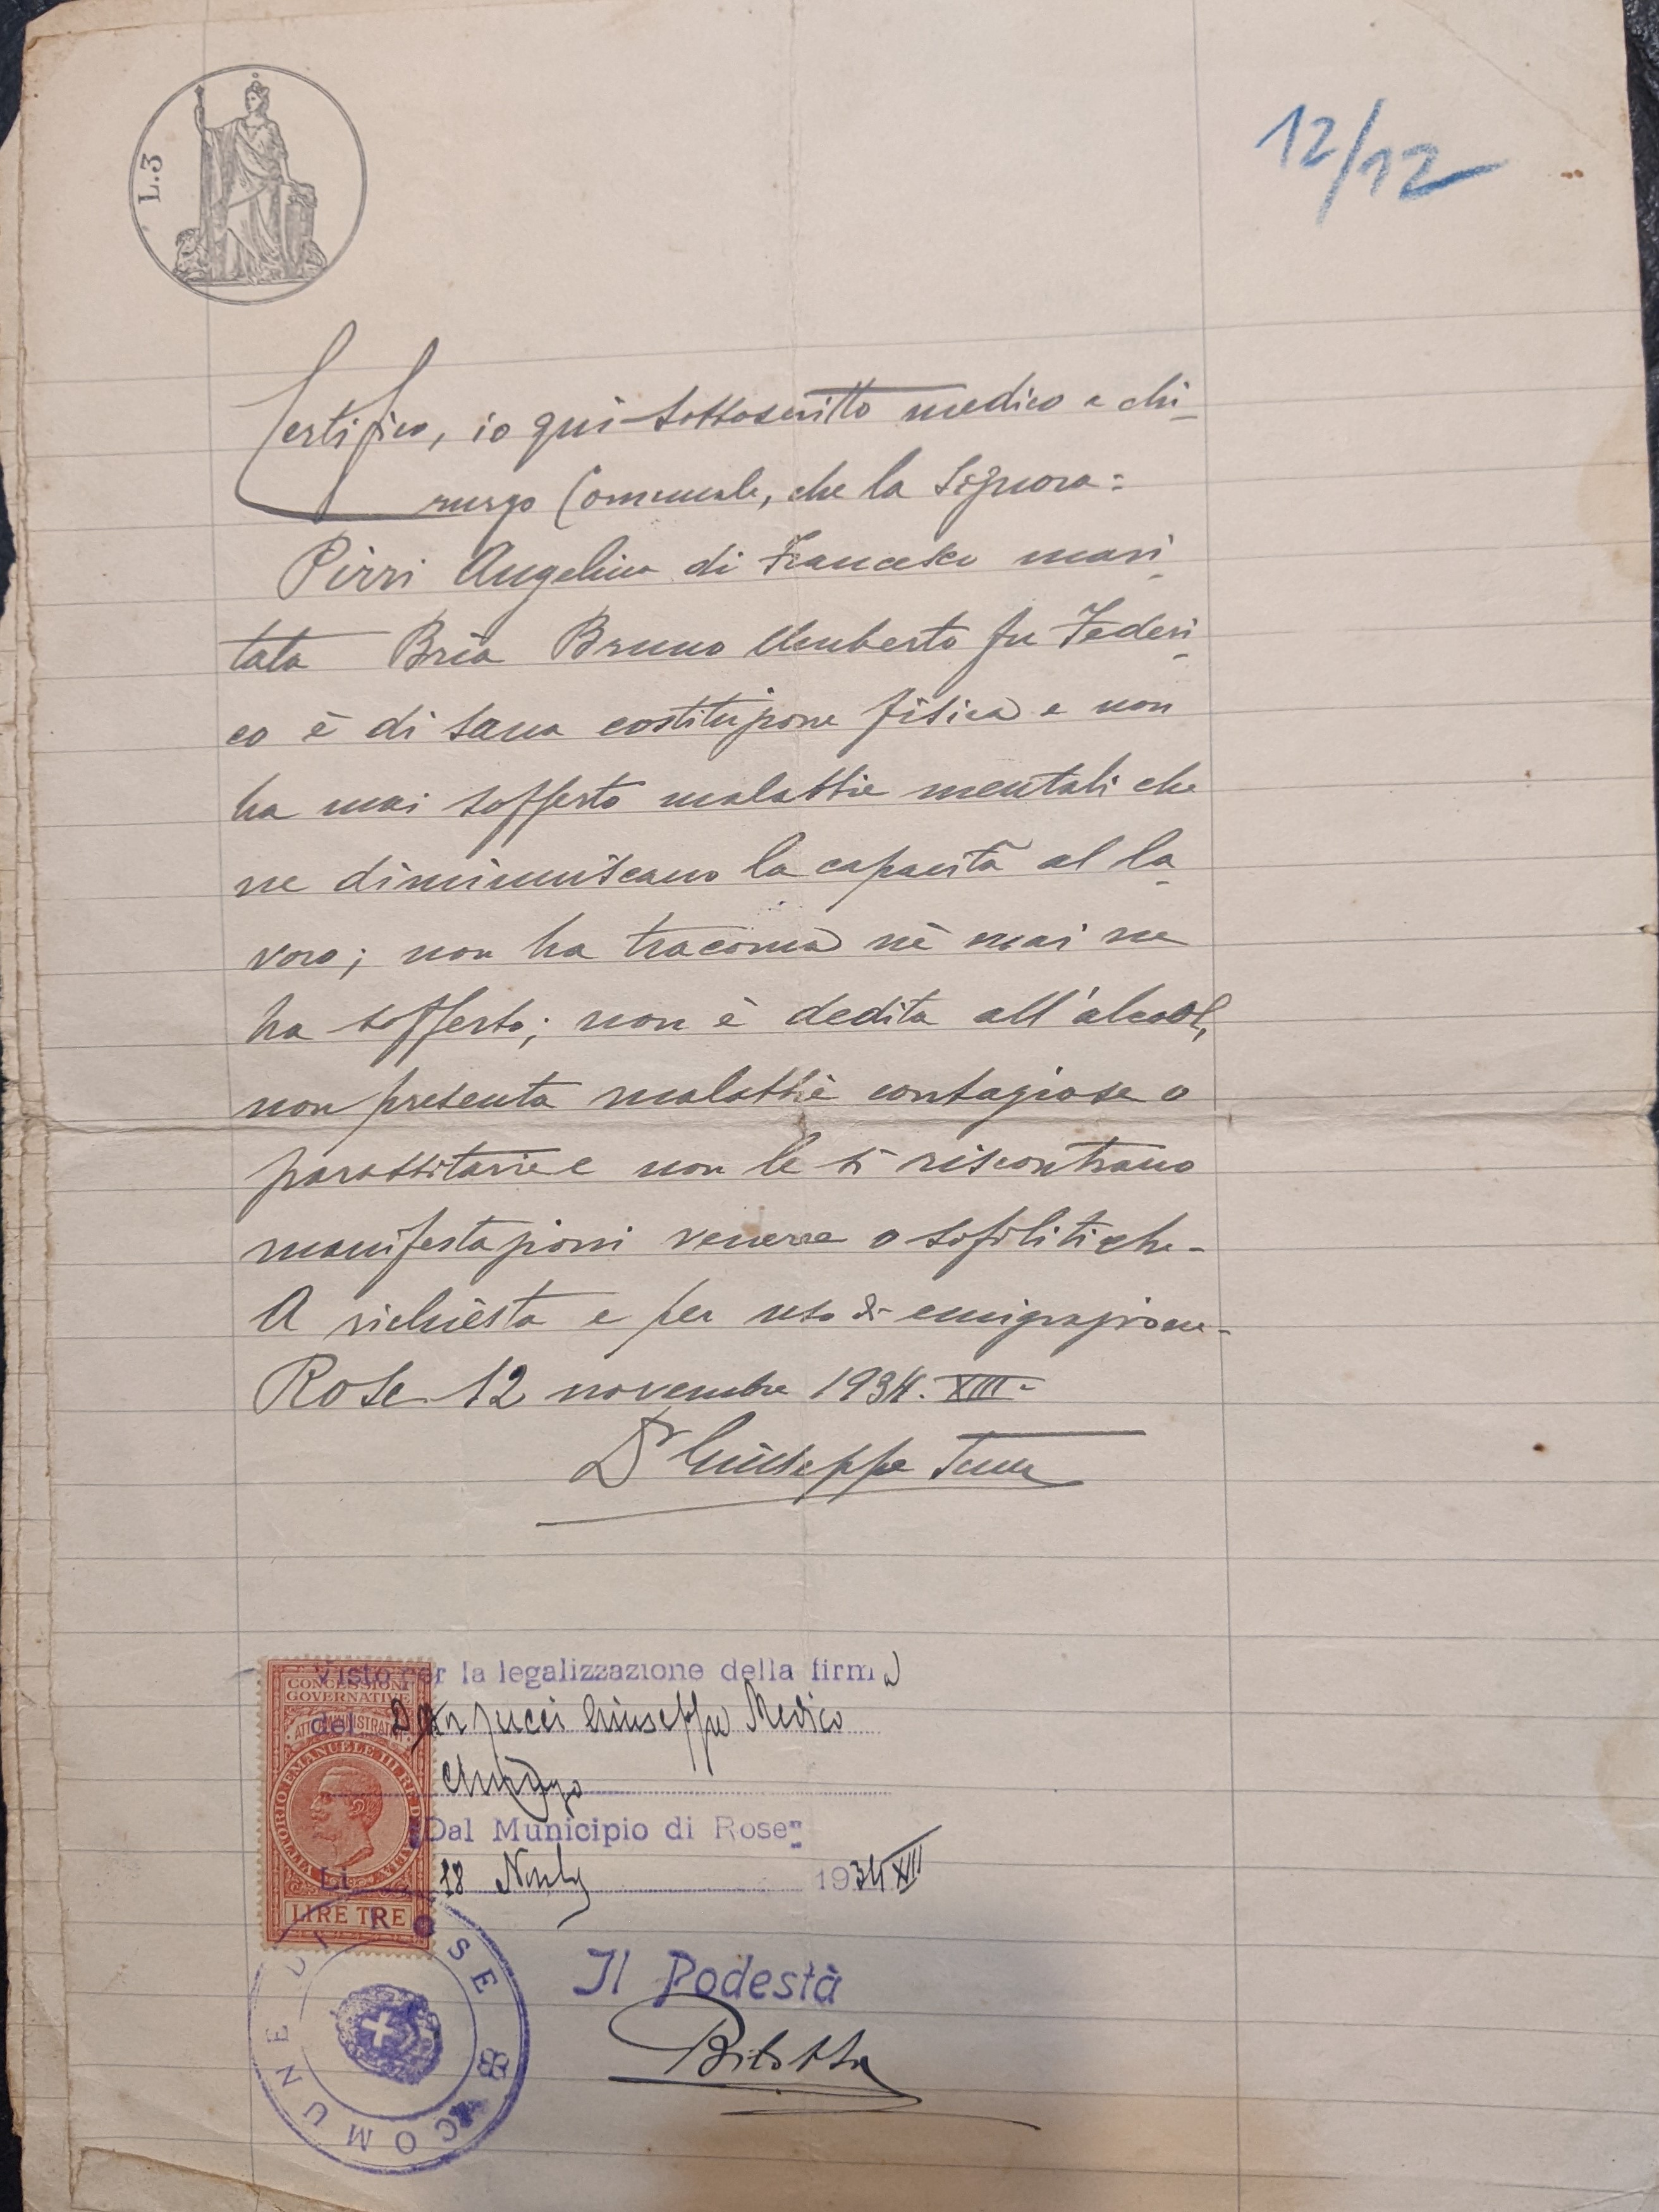 L.3
12/12
Certifico, io qui sottoscritto medico e chi-
rurgo Comunale, che la Signora:
Pirri Angelina di Francesco mari-
tata Bria Bruno Umberto fu Federi-
co è di sana costituzione fisica e non
ha mai sofferto malattie mentali che
ne diminuiscano la capacità al la-
voro; non ha tracoma nè mai ne
ha sofferto; non è dedita all'alcool,
non presenta malattie contagiose o
parassitarie e non le si riscontrano
manifestazioni veneree o sifilitiche-
A richiesta e per uso di emigrazione-
Rose 12 novembre 1934. XIII-
Dr Giuseppe
Visto per la legalizzazione della firma
del Giuseppe Medico
Chirurgo
Dal Municipio di Rose
Li 18 1934 XIII
CONCESSIONI
GOVERNATIVE
ATTI AMMINISTRATIVI
VITTORIO EMANUELE III RE D'ITALIA
LIRE TRE
COMUNE DI ROSE
Il Podestà
Bilotta